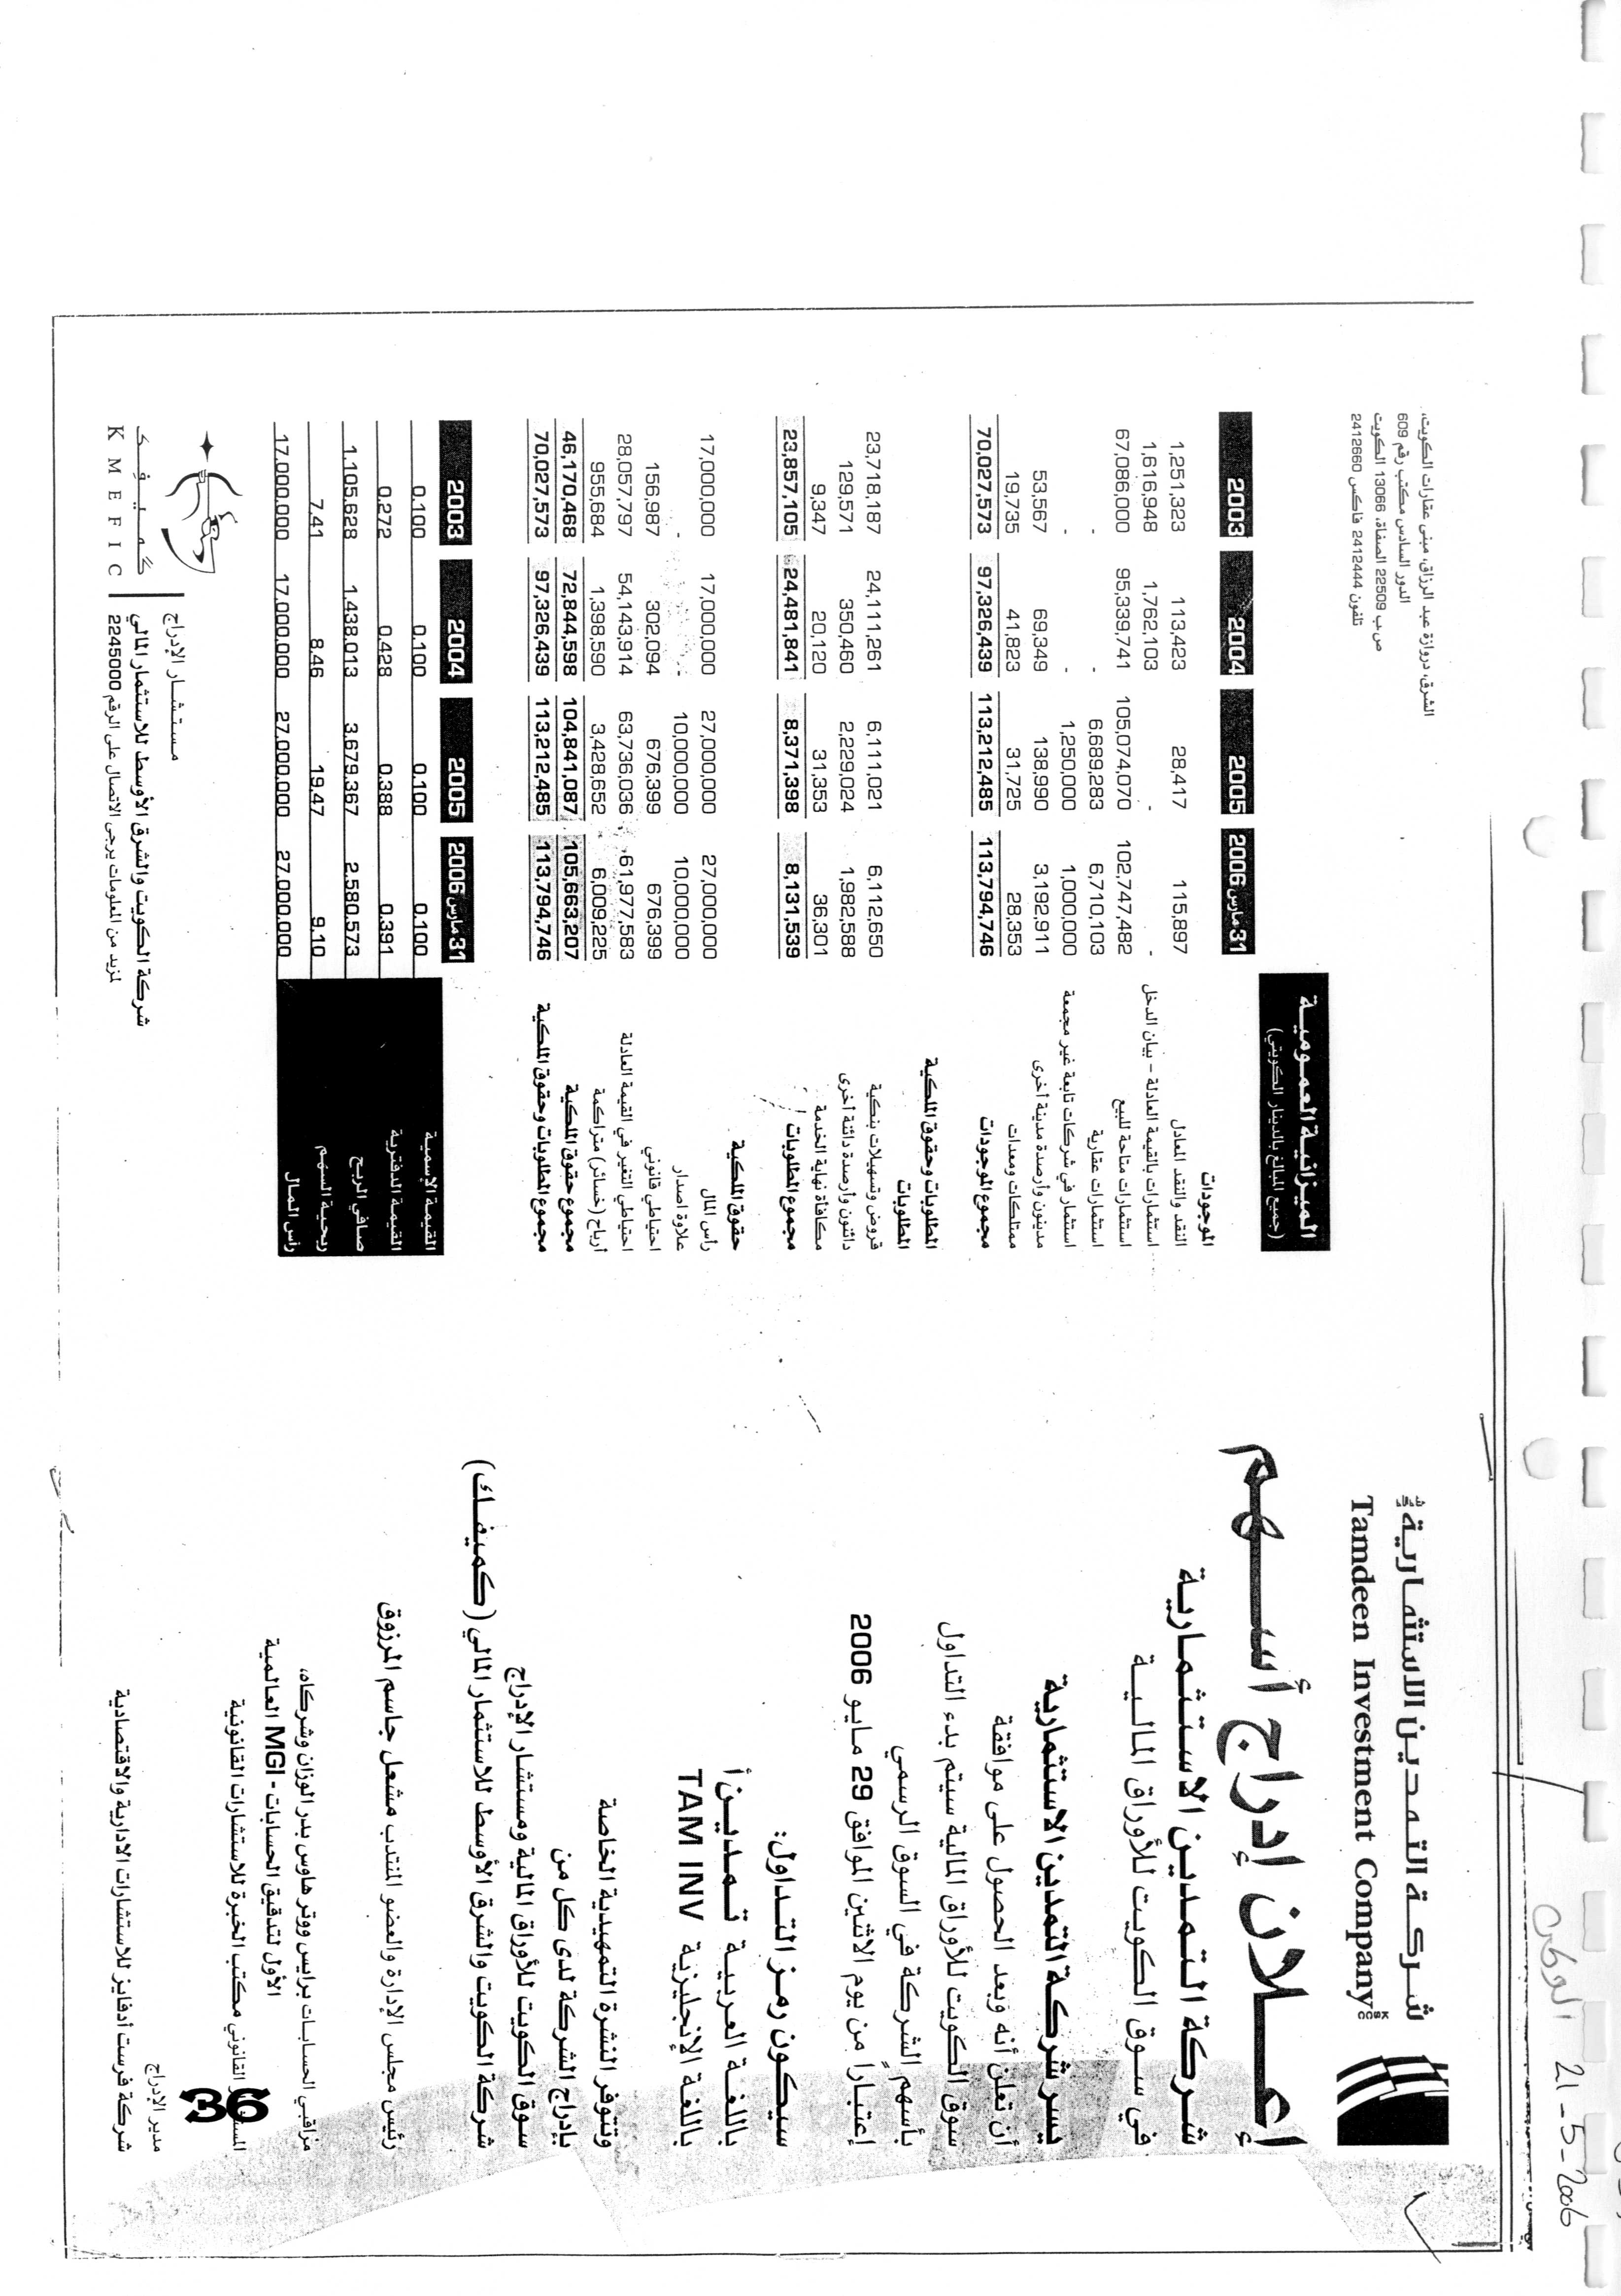 الوطن 21-5-2006
شركة التمدين الاستثمارية
Tamdeen Investment Company
إعلان إدراج أسهم
شركة التمدين الاستثمارية
في سوق الكويت للأوراق المالية
يسر شركة التمدين الاستثمارية
أن تعلن أنه وبعد الحصول على موافقة
سوق الكويت للأوراق المالية سيتم بدء التداول
بأسهم الشركة في السوق الرسمي
إعتباراً من يوم الاثنين الموافق 29 مايو 2006
سيكون رمز التداول:
باللغة العربية تمدين أ
باللغة الإنجليزية TAM INV
وتتوفر النشرة التمهيدية الخاصة
بإدراج الشركة لدى كل من
سوق الكويت للأوراق المالية ومستشار الإدراج
شركة الكويت والشرق الأوسط للاستثمار المالي (كميفك)
رئيس مجلس الإدارة والعضو المنتدب مشعل جاسم المرزوق
مراقبي الحسابات برايس ووتر هاوس بدر الوزان وشركاه،
الأول لتدقيق الحسابات - MGI العالمية
القانوني مكتب الخبرة للاستشارات القانونية
36
مدير الإدراج
شركة فرست أدفايزر للاستشارات الادارية والاقتصادية
الشرق، دروازة عبد الرزاق، مبنى عقارات الكويت،
الدور السادس مكتب رقم 609
ص.ب 22509 الصفاة، 13066 الكويت
تلفون 2412444 فاكس 2412660
الميزانية العمومية
(جميع المبالغ بالدينار الكويتي)
31 مارس 2006 2005 2004 2003
الموجودات
النقد والنقد المعادل 115,897 28,417 113,423 1,251,323
استثمارات بالقيمة العادلة - بيان الدخل - - 1,762,103 1,616,948
استثمارات متاحة للبيع 102,747,482 105,074,070 95,339,741 67,086,000
استثمارات عقارية 6,710,103 6,689,283 - -
استثمار في شركات تابعة غير مجمعة 1,000,000 1,250,000 - -
مدينون وأرصدة مدينة أخرى 3,192,911 138,990 69,349 53,567
ممتلكات ومعدات 28,353 31,725 41,823 19,735
مجموع الموجودات 113,794,746 113,212,485 97,326,439 70,027,573
المطلوبات وحقوق الملكية
المطلوبات
قروض وتسهيلات بنكية 6,112,650 6,111,021 24,111,261 23,718,187
دائنون وأرصدة دائنة أخرى 1,982,588 2,229,024 350,460 129,571
مكافأة نهاية الخدمة 36,301 31,353 20,120 9,347
مجموع المطلوبات 8,131,539 8,371,398 24,481,841 23,857,105
حقوق الملكية
رأس المال 27,000,000 27,000,000 17,000,000 17,000,000
علاوة اصدار 10,000,000 10,000,000 - -
احتياطي قانوني 676,399 676,399 302,094 156,987
احتياطي التغير في القيمة العادلة 61,977,583 63,736,036 54,143,914 28,057,797
أرباح (خسائر) متراكمة 6,009,225 3,428,652 1,398,590 955,684
مجموع حقوق الملكية 105,663,207 104,841,087 72,844,598 46,170,468
مجموع المطلوبات وحقوق الملكية 113,794,746 113,212,485 97,326,439 70,027,573
31 مارس 2006 2005 2004 2003
القيمة الإسمية 0.100 0.100 0.100 0.100
القيمة الدفترية 0.391 0.388 0.428 0.272
صافي الربح 2,580,573 3,679,367 1,438,013 1,105,628
ربحية السهم 9.10 19.47 8.46 7.41
رأس المال 27,000,000 27,000,000 17,000,000 17,000,000
مستشار الإدراج
شركة الكويت والشرق الأوسط للاستثمار المالي
لمزيد من المعلومات يرجى الاتصال على الرقم 2245000
كميفك
KMEFIC